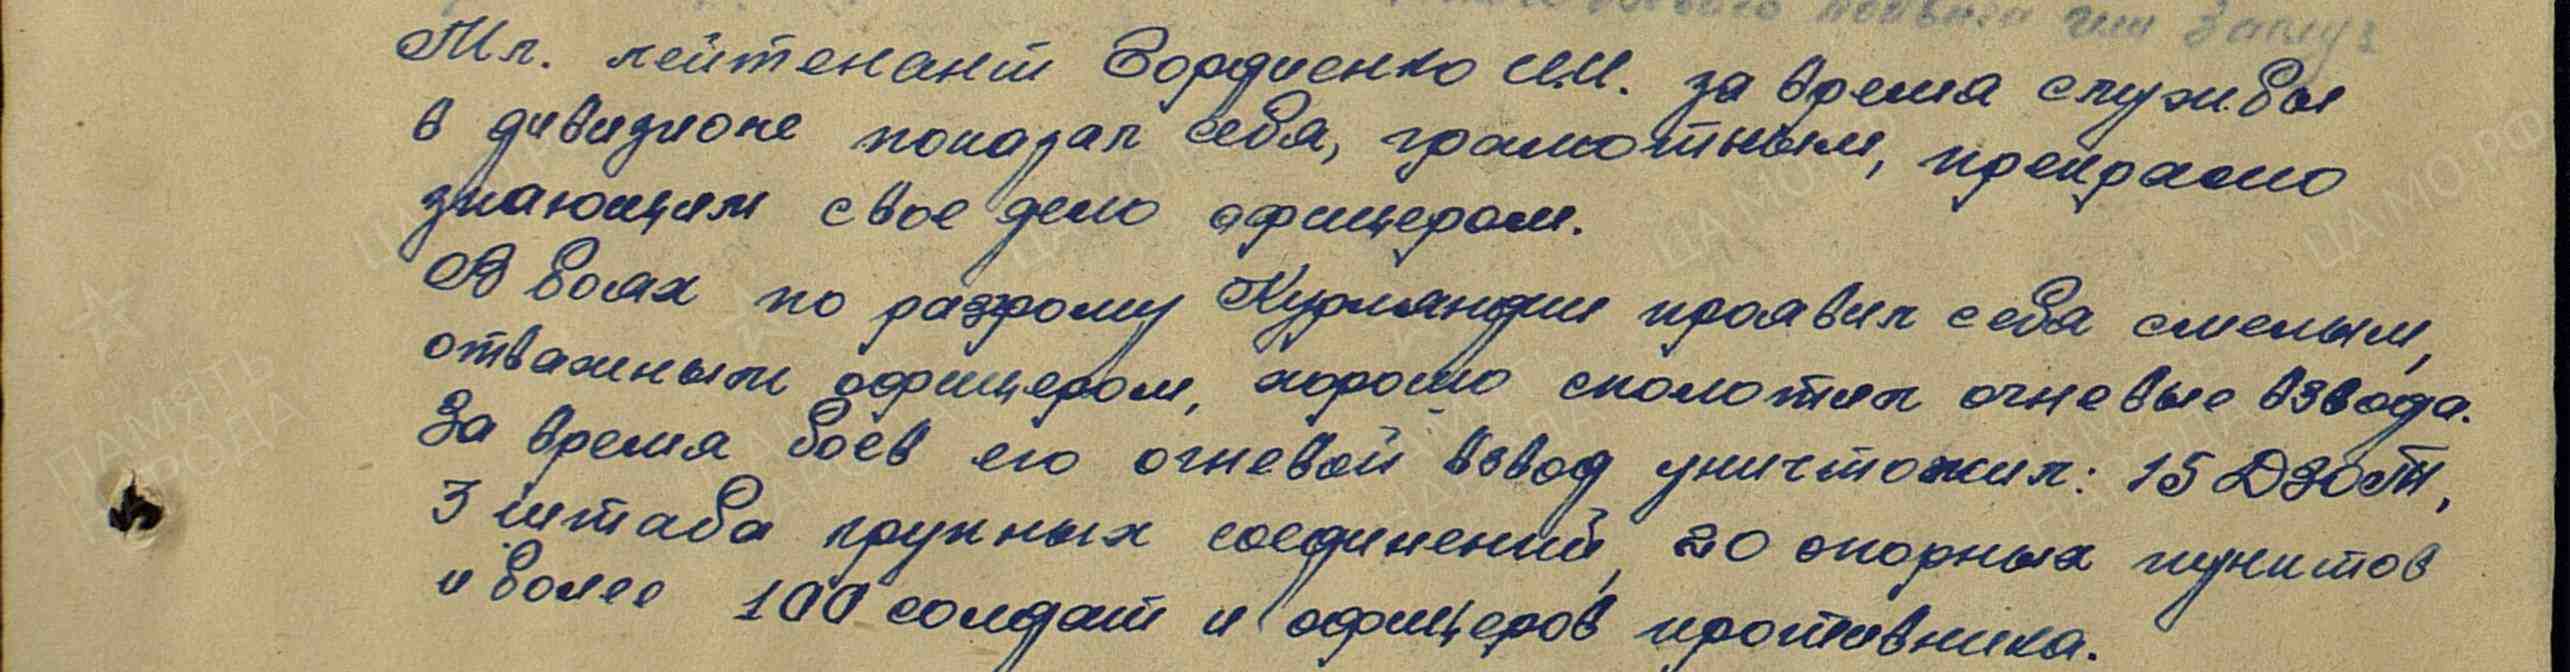 Мл. лейтенант Гордиенко И.И. за время службы
в дивизионе показал себя, грамотным, прекрасно
знающим свое дело офицером.
В боях по разгрому Курляндии проявил себя смелым,
отважным офицером, хорошо сколотил огневые взвода.
За время боев его огневой взвод уничтожил: 15 ДЗОТ,
3 штаба крупных соединений, 20 опорных пунктов
и более 100 солдат и офицеров противника.
ПАМЯТЬ НАРОДА
ЦАМО.РФ